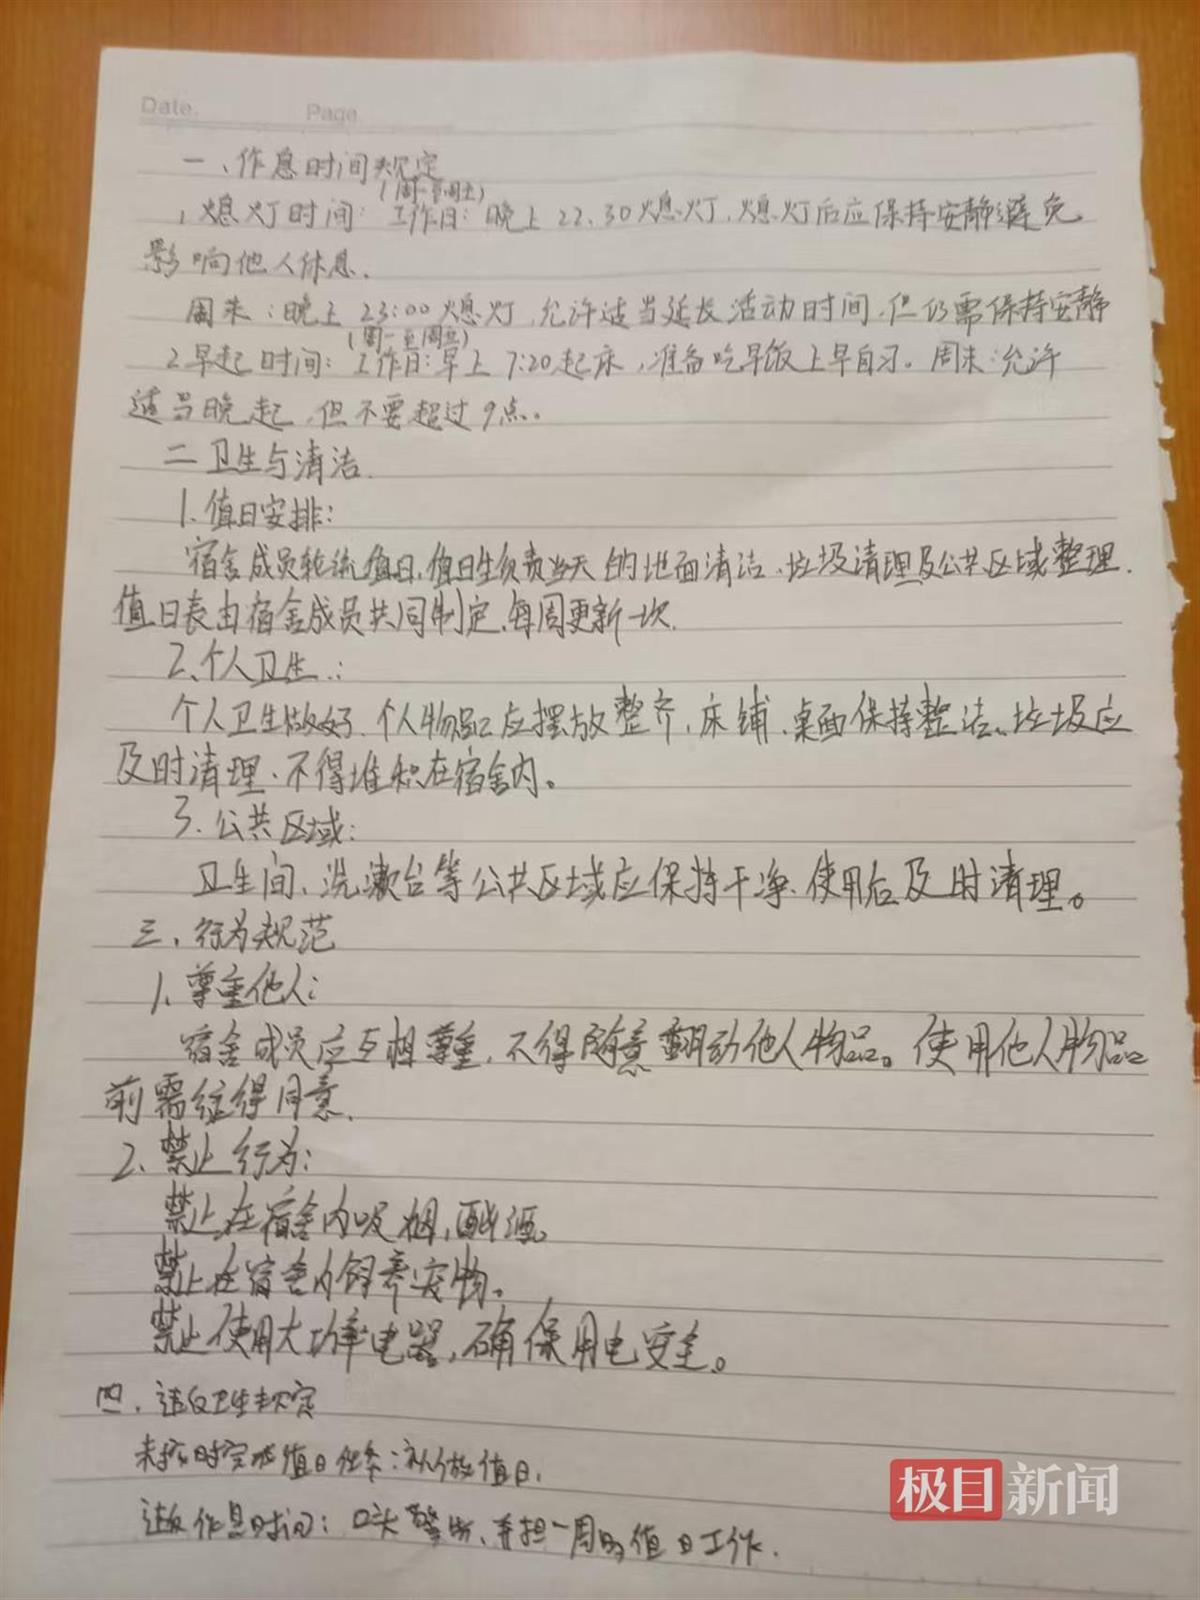 Date. Page
一、作息时间规定
(周一至周五)
1、熄灯时间：工作日：晚上22:30熄灯，熄灯后应保持安静避免
影响他人休息.
周末：晚上23:00熄灯，允许适当延长活动时间，但仍需保持安静
(周一至周五)
2.早起时间：工作日：早上7:20起床，准备吃早饭上早自习。周末：允许
适当晚起，但不要超过9点。
二 卫生与清洁.
1.值日安排：
宿舍成员轮流值日，值日生负责当天的地面清洁、垃圾清理及公共区域整理.
值日表由宿舍成员共同制定，每周更新一次.
2、个人卫生：
个人卫生做好，个人物品应摆放整齐，床铺、桌面保持整洁、垃圾应
及时清理、不得堆积在宿舍内。
3.公共区域：
卫生间、洗漱台等公共区域应保持干净、使用后及时清理。
三、行为规范
1、尊重他人：
宿舍成员应互相尊重，不得随意翻动他人物品。使用他人物品
前需征得同意.
2、禁止行为：
禁止在宿舍内吸烟，酗酒。
禁止在宿舍内饲养宠物。
禁止使用大功率电器，确保用电安全。
四、违反卫生规定
未按时完成值日任务：补做值日.
违反作息时间：口头警告、并担一周的值日工作.
极目新闻